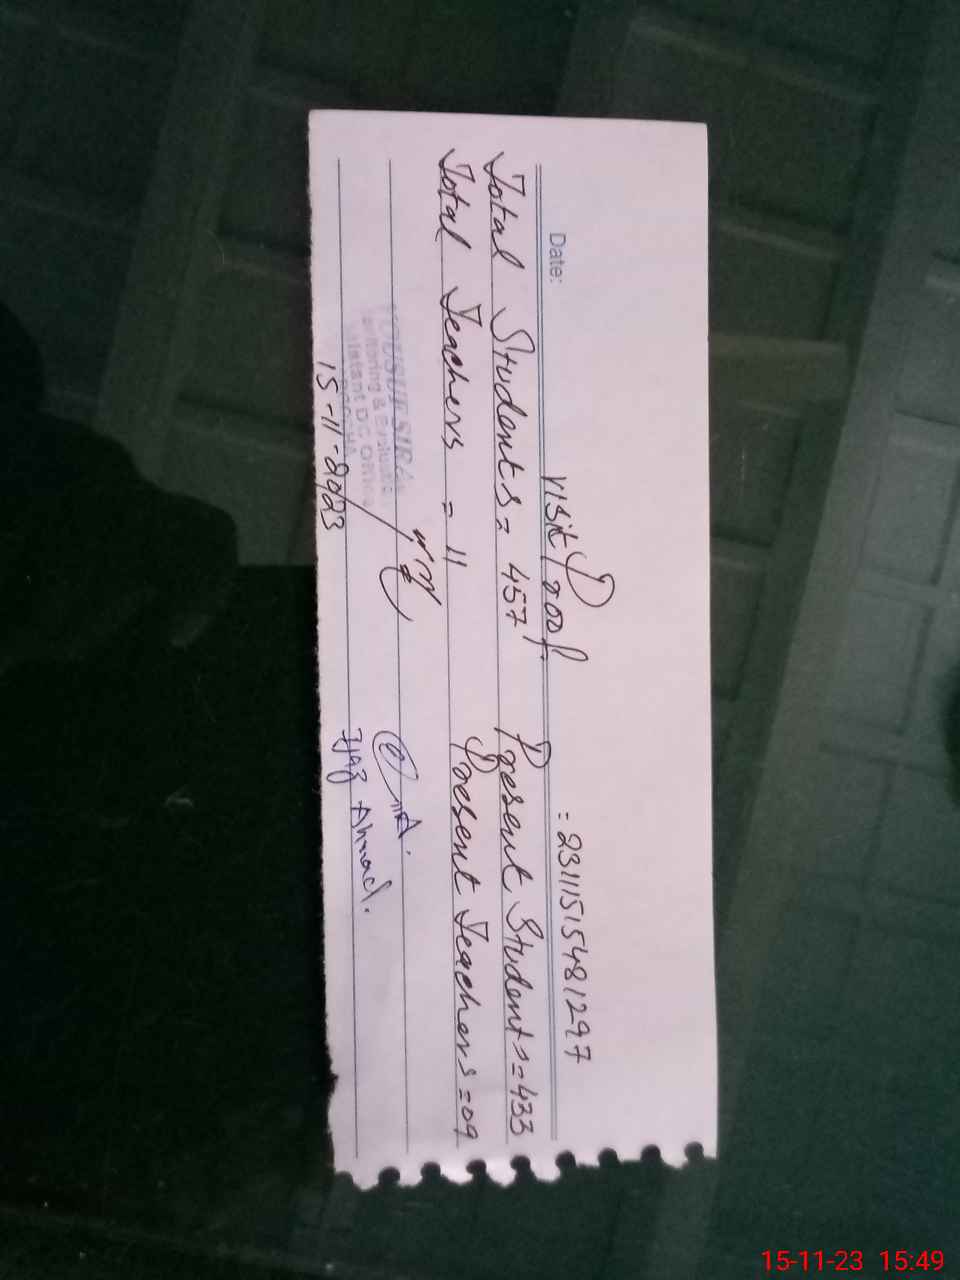 Date:
Visit Proof. = 23111515481297
Total Students = 457 Present Students = 433
Total Teachers = 11 Present Teachers = 09
Monitoring & Evaluation
Assistant DC Office
15-11-2023
Ijaz Ahmad.
15-11-23 15:49